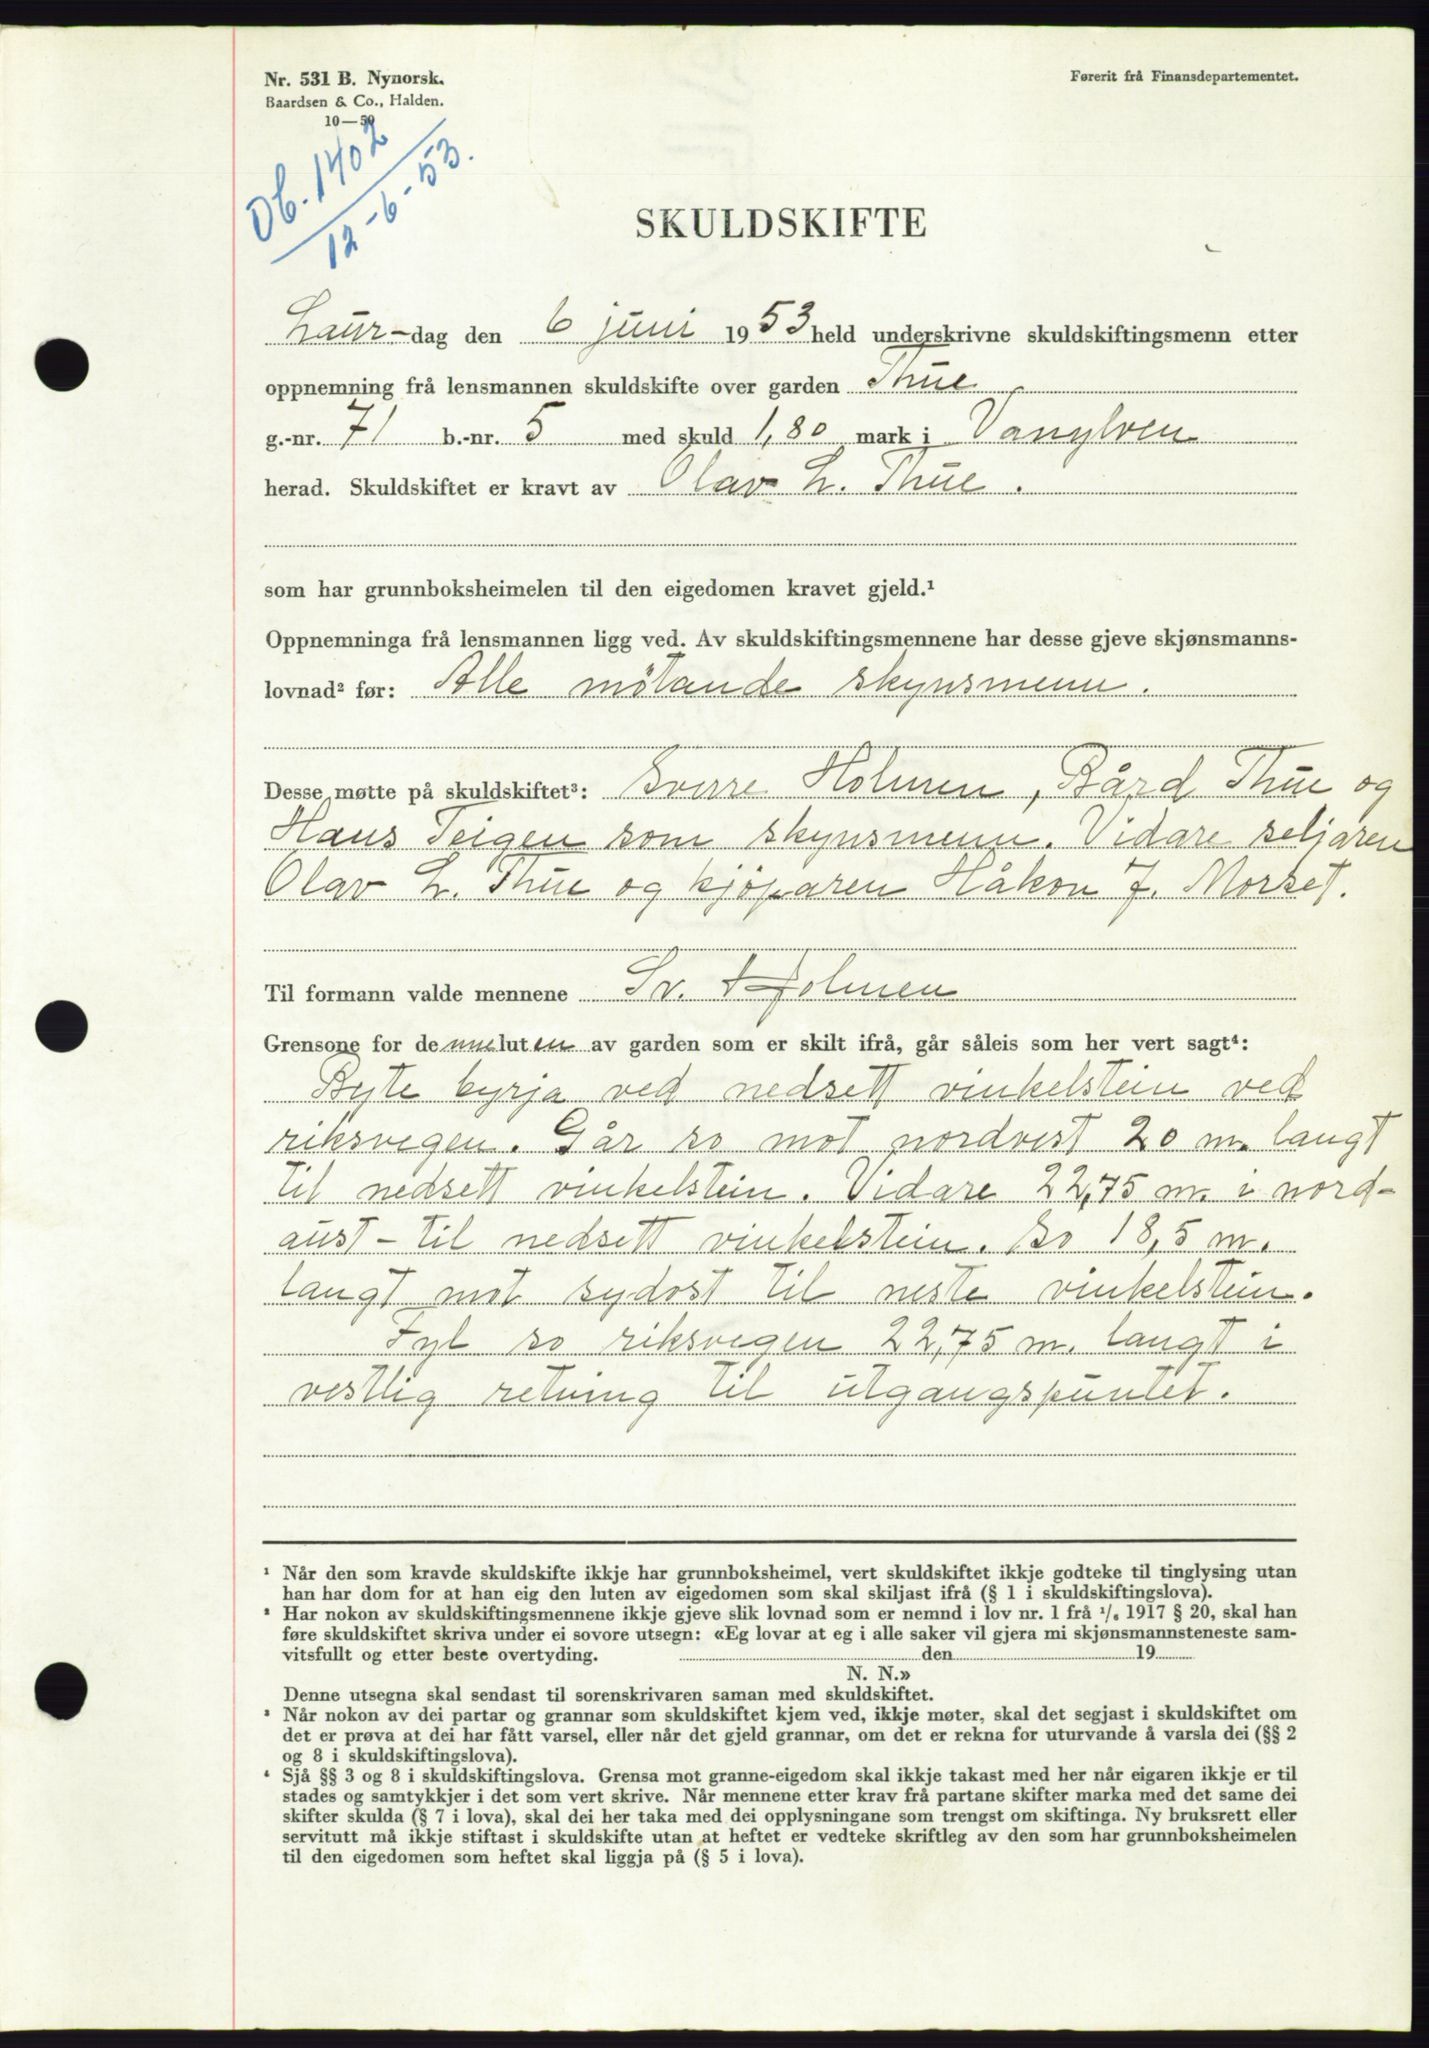 Nr. 531 B. Nynorsk.
Baardsen & Co., Halden.
10—50
Førerit frå Finansdepartementet.
Db. 1402
12-6-53.
SKULDSKIFTE
Laur-dag den 6 juni 1953 held underskrivne skuldskiftingsmenn etter
oppnemning frå lensmannen skuldskifte over garden Thue
g.-nr. 71 b.-nr. 5 med skuld 1,80 mark i Vanylven
herad. Skuldskiftet er kravt av Olav L. Thue.
som har grunnboksheimelen til den eigedomen kravet gjeld.¹
Oppnemninga frå lensmannen ligg ved. Av skuldskiftingsmennene har desse gjeve skjønsmanns-
lovnad² før: Alle møtande skynsmenn.
Desse møtte på skuldskiftet³: Sverre Holmen, Bård Thue og
Hans Teigen som skynsmenn. Vidare seljaren
Olav L. Thue og kjøparen Håkon J. Morset.
Til formann valde mennene Sv. Holmen
Grensone for denne luten av garden som er skilt ifrå, går såleis som her vert sagt⁴:
Byte byrja ved nedsett vinkelstein ved
riksvegen. Går so mot nordvest 20 m. langt
til nedsett vinkelstein. Vidare 22,75 m. i nord-
aust - til nedsett vinkelstein. So 18,5 m.
langt mot sydost til neste vinkelstein.
Fyl so riksvegen 22,75 m. langt i
vestlig retning til utgangspuntet.
¹ Når den som kravde skuldskifte ikkje har grunnboksheimel, vert skuldskiftet ikkje godteke til tinglysing utan
han har dom for at han eig den luten av eigedomen som skal skiljast ifrå (§ 1 i skuldskiftingslova).
² Har nokon av skuldskiftingsmennene ikkje gjeve slik lovnad som er nemnd i lov nr. 1 frå ¹/₆ 1917 § 20, skal han
føre skuldskiftet skriva under ei sovore utsegn: «Eg lovar at eg i alle saker vil gjera mi skjønsmannsteneste sam-
vitsfullt og etter beste overtyding. den 19
N. N.»
Denne utsegna skal sendast til sorenskrivaren saman med skuldskiftet.
³ Når nokon av dei partar og grannar som skuldskiftet kjem ved, ikkje møter, skal det segjast i skuldskiftet om
det er prøva at dei har fått varsel, eller når det gjeld grannar, om det er rekna for uturvande å varsla dei (§§ 2
og 8 i skuldskiftingslova).
⁴ Sjå §§ 3 og 8 i skuldskiftingslova. Grensa mot granne-eigedom skal ikkje takast med her når eigaren ikkje er til
stades og samtykkjer i det som vert skrive. Når mennene etter krav frå partane skifter marka med det same dei
skifter skulda (§ 7 i lova), skal dei her taka med dei opplysningane som trengst om skiftinga. Ny bruksrett eller
servitutt må ikkje stiftast i skuldskifte utan at heftet er vedteke skriftleg av den som har grunnboksheimelen
til den eigedomen som heftet skal liggja på (§ 5 i lova).